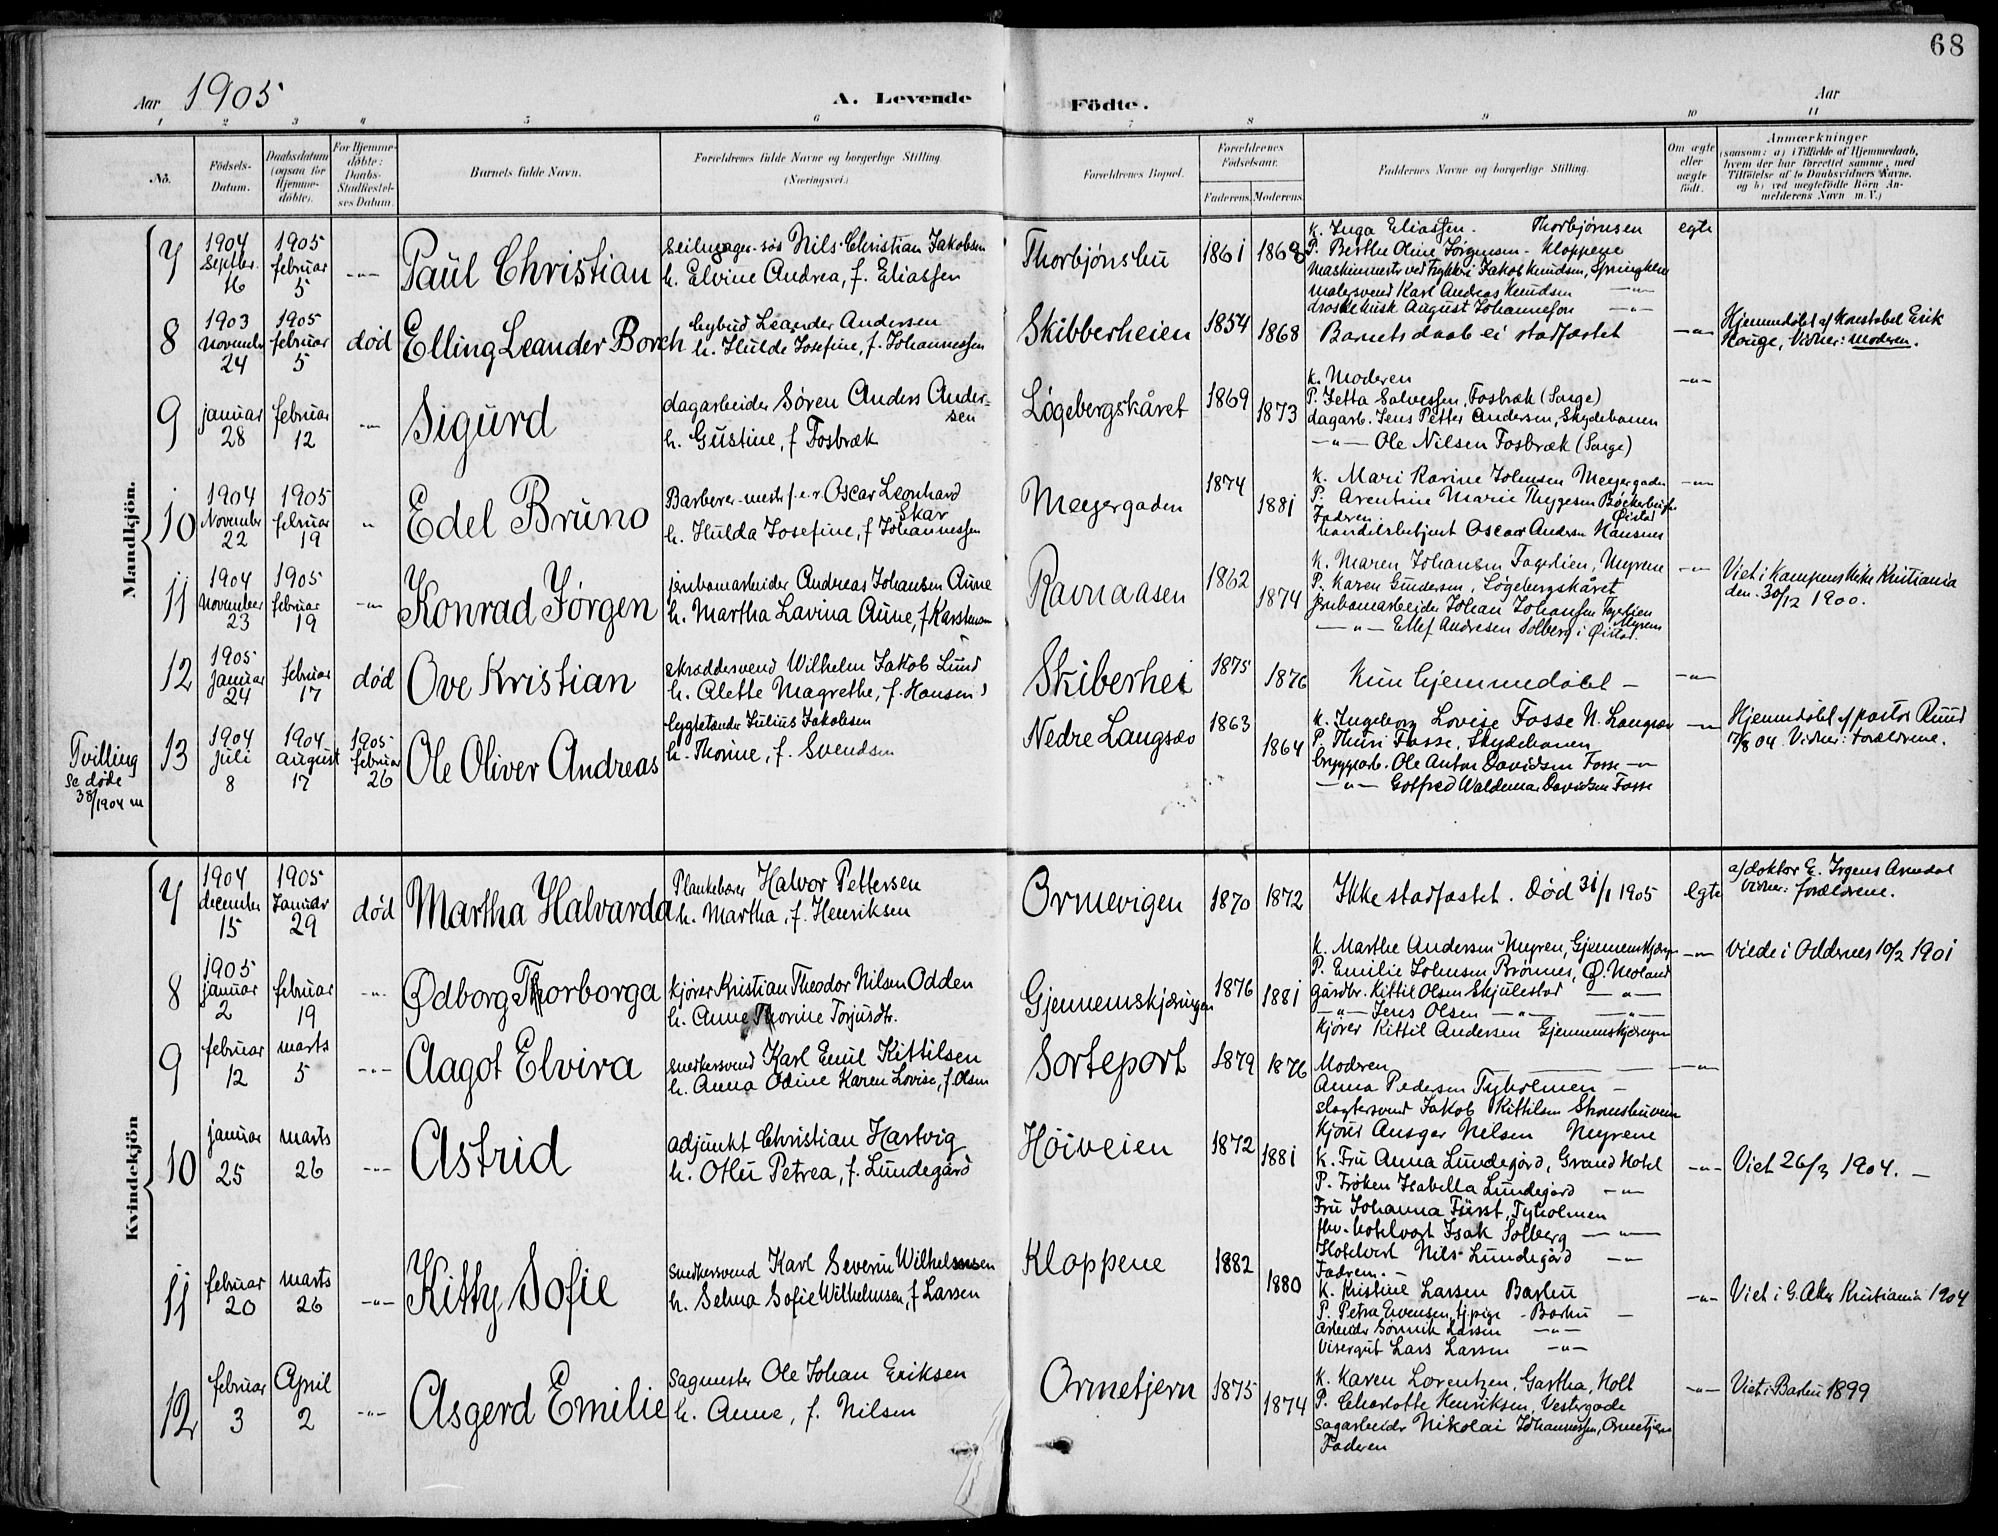 68
Aar 1905 A. Levende Födte. Aar
1 2 3 4 5 6 7 8 9 10 11
No.
Födsels-Datum.
Daabsdatum (ogsaa for Hjemme-döbte).
For Hjemme-döbte: Daabs-Stadfæstel-ses Datum.
Barnets fulde Navn.
Forældrenes fulde Navne og borgerlige Stilling.
(Næringsvei.)
Forældrenes Bopæl.
Forældrenes Födselsaar.
Faderens. Moderens.
Faddernes Navne og borgerlige Stilling.
Om ægte eller uægte födt.
Anmærkninger
(saasom: a) i Tilfælde af Hjemmedaab, hvem der har forrettet samme, med Tilföielse af to Daabsvidners Navne, og b) ved uægtefödte Börn An-melderens Navn m. V.)
Mandkjön.
7
1904 Septbr. 16
1905 februar 5
-"-
Paul Christian
Nils Christian Jakobsen
h. Elvine Andrea, f. Eliassen
Thorbjønsbu
1861 1868
K. Inga Eliassen. Thorbjørnsen
P. Berthe Oline Jørgensen - Kloppene
Jakob Knudsen,
malersvend Karl Andreas Knudsen -"-
droskekusk August Johannesen -"-
egte
8
1903 November 24
1905 februar 5
død
Elling Leander Borch
bybud Leander Andersen
h. Hulde Josefine, f. Johannessen
Skibberheien
1854 1868
Barnets daab ei stadfæstet
-"-
Hjemmdøbt af Konstabel Erik
Hauge, Vidner: moderen.
9
januar 28
februar 12
-"-
Sigurd
dagarbeider Søren Anders Ander-
sen
h. Gustine, f Fosbræk
Løgebergskåret
1869 1873
K. Moderen
P. Jetta Salvessen, Fosbræk (Songe)
dagarb. Jens Petter Andersen, Skydebanen
-"- Ole Nilsen Fosbræk (Songe)
-"-
10
1904 November 22
1905 februar 19
"
Edel Bruno
Oscar Leonhard
Skar
h. Hulda Josefine, f Johannessen
Meyergaden
1874 1881
K. Mari Karine Johnsen Meyergaden
P. Arentine Marie Thygesen
Øistad
Faderen
handelsbetjent Oscar Andersen
-"-
11
1904 November 23
1905 februar 19
-"-
Konrad Jørgen
jernbanearbeider Andreas Johansen Aune
h. Martha Lavina Aune, f Karstensen
Ravnaasen
1862 1874
K. Maren Johansen Fagerlien, Myrene
P. Karen Gundersen, Løgebergskåret
jernbanarbeider Johan Johansen Fagerlien
Myrene
-"- Ellef Andresen Solberg i Øistad.
-"-
Viet i Kampens Kirke Kristiania
den 30/12 1900.
12
1905 januar 24
februar 17
død
Ove Kristian
skræddersvend Wilhelm Jakob Lund
h. Alette Magrethe, f. Hansen
Skiberhei
1875 1876
Kun hjemmedøbt -
-"-
Tvilling
Se døde
38/1904 m
13
1904 juli 8
1904 August 17
1905 februar 26
Ole Oliver Andreas
bygtetender Julius Jakobsen
h. Thorine, f. Svendsen
Nedre Langsæ
1863 1864
K. Ingeborg Lovise Fosse N. Langsæ
P. Thuri Fosse, Skydebanen
bryggearb. Ole Anton Davidsen Fosse -"-
-"- Gotfred Waldemar Davidsen Fosse
-"-
Hjemmdøbt af pastor Ruud
17/8 04 Vidner: forældrene.
Kvindekjön
7
1904 december 15
1905 Januar 29
død
Martha Halvarda
Plankebærer Halvor Pettersen
h. Martha, f. Henriksen
Ormevigen
1870 1872
Ikke stadfæstet. Død 31/1 1905
egte
af doktor E. Irgens Arendal
Vidner: forældrene.
8
1905 januar 2
februar 19
-"-
Ødborg Thorborga
kjører Kristian Theodor Nilsen Odden
h. Anne Thorine Torjusdtr.
Gjennemskjæringen
1876 1881
K. Marthe Andersen Myren, Gjennemskjæringen
P. Emilie Johnsen Brønnes, Ø. Moland
gårdbr. Kittil Olsen Skjulestad -"-
-"- Jens Olsen -"- -"-
Kjører Kittil Andersen Gjennemskjæringen
-"-
Viede i Oddernes 10/2 1901
9
februar 12
marts 5
-"-
Aagot Elvira
snedkersvend Karl Emil Kittilsen
h. Anna Odine Karen Lovise, f. Olsen
Sorteport
1879 1876
Modren
Anna Pedersen Tyholmen -
slagtersvend Jakob Kittilsen Strømsbuveien
kjører Ansgar Nilsen Myrene
-"-
10
januar 25
marts 26
-"-
Astrid
adjunkt Christian Hartvig
h. Petrea, f. Lundegård
Høiveien
1872 1881
K. Fru Anna Lundegård, Grand Hotel
P. Frøken Isabella Lundegård -"-
Fru Johanna Fürst, Tyholmen
fhv. hotelvært Isak Solberg -"-
Hotelvert Nils Lundegård -"-
Fadren. -
-"-
Viet 26/3 1904. -
11
februar 20
marts 26
-"-
Kitty Sofie
snedkersvend Karl Severin Wilhelmsen
h. Selma Sofie Wilhelmsen, f Larsen
Kloppene
1882 1880
K. Kristine Larsen Barbu
P. Petra Evensen, tj.pige - Barbu -
Arbeider Larsen -"-
Visergut Lars Larsen -"-
-"-
Viet i G. Aker Kristiania 1904
12
februar 3
April 2
-"-
Asgerd Emilie
sagmester Ole Johan Eriksen
h. Anne, f. Nilsen
Ormetjern
1875 1874
K. Karen Lorentzen, Gartha, Holt
P. Charlotte Henriksen, Vestregade
sagarbeider Nikolai Johannessen, Ormetjern
Faderen
-"-
Viet i Barbu 1899